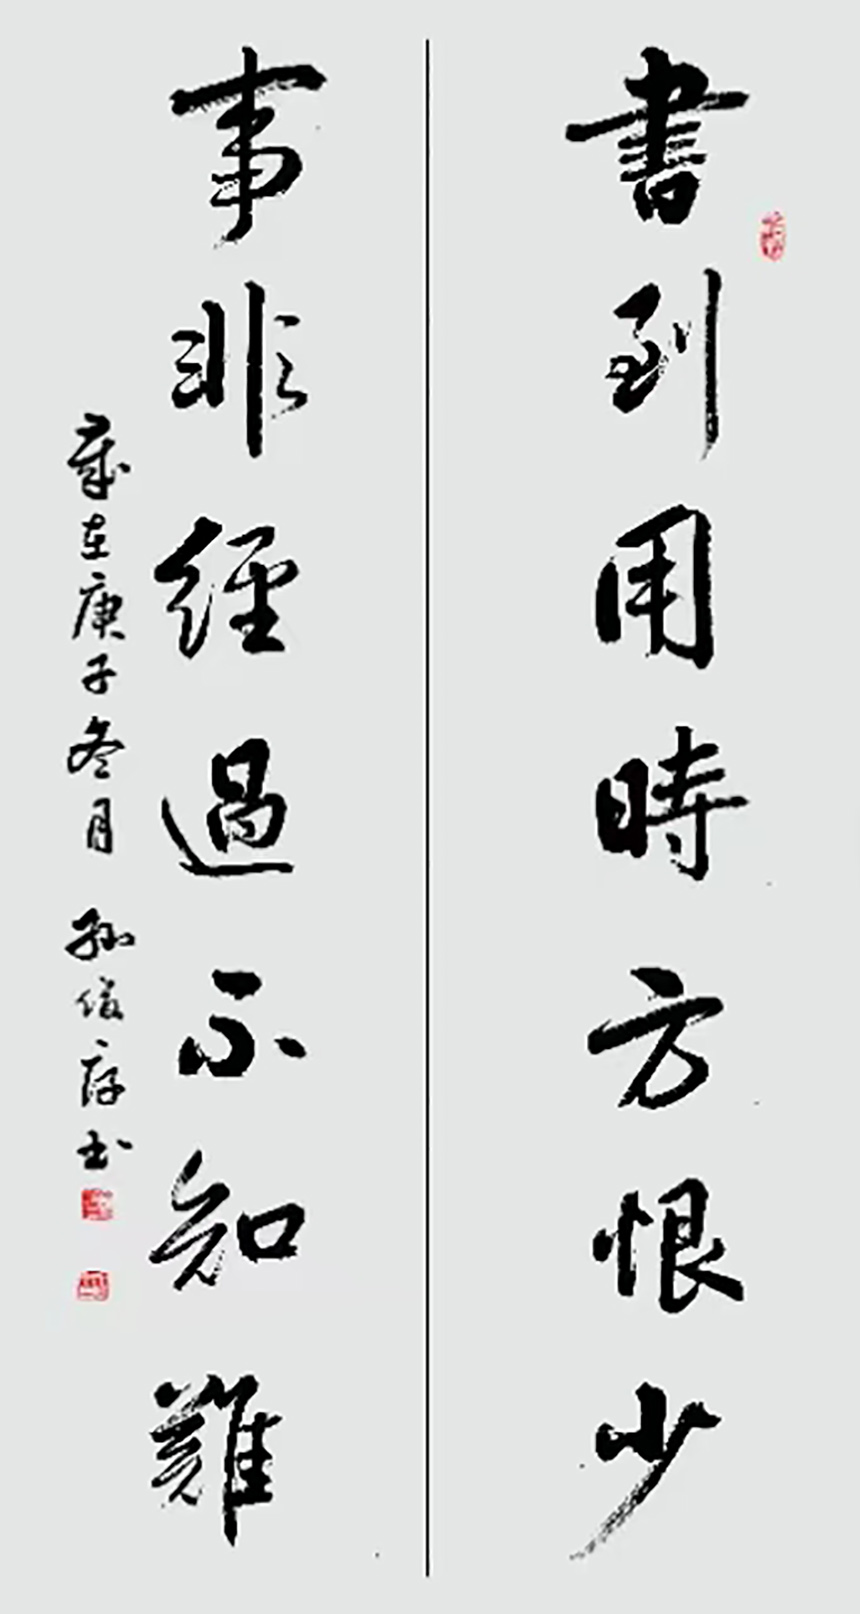 書到用時方恨少
事非經過不知難
歲在庚子冬月 孫俊存书